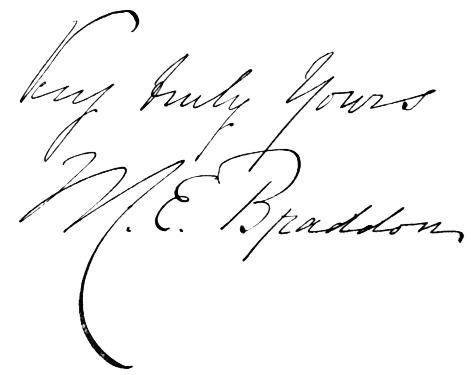 Very truly Yours
M. E. Braddon